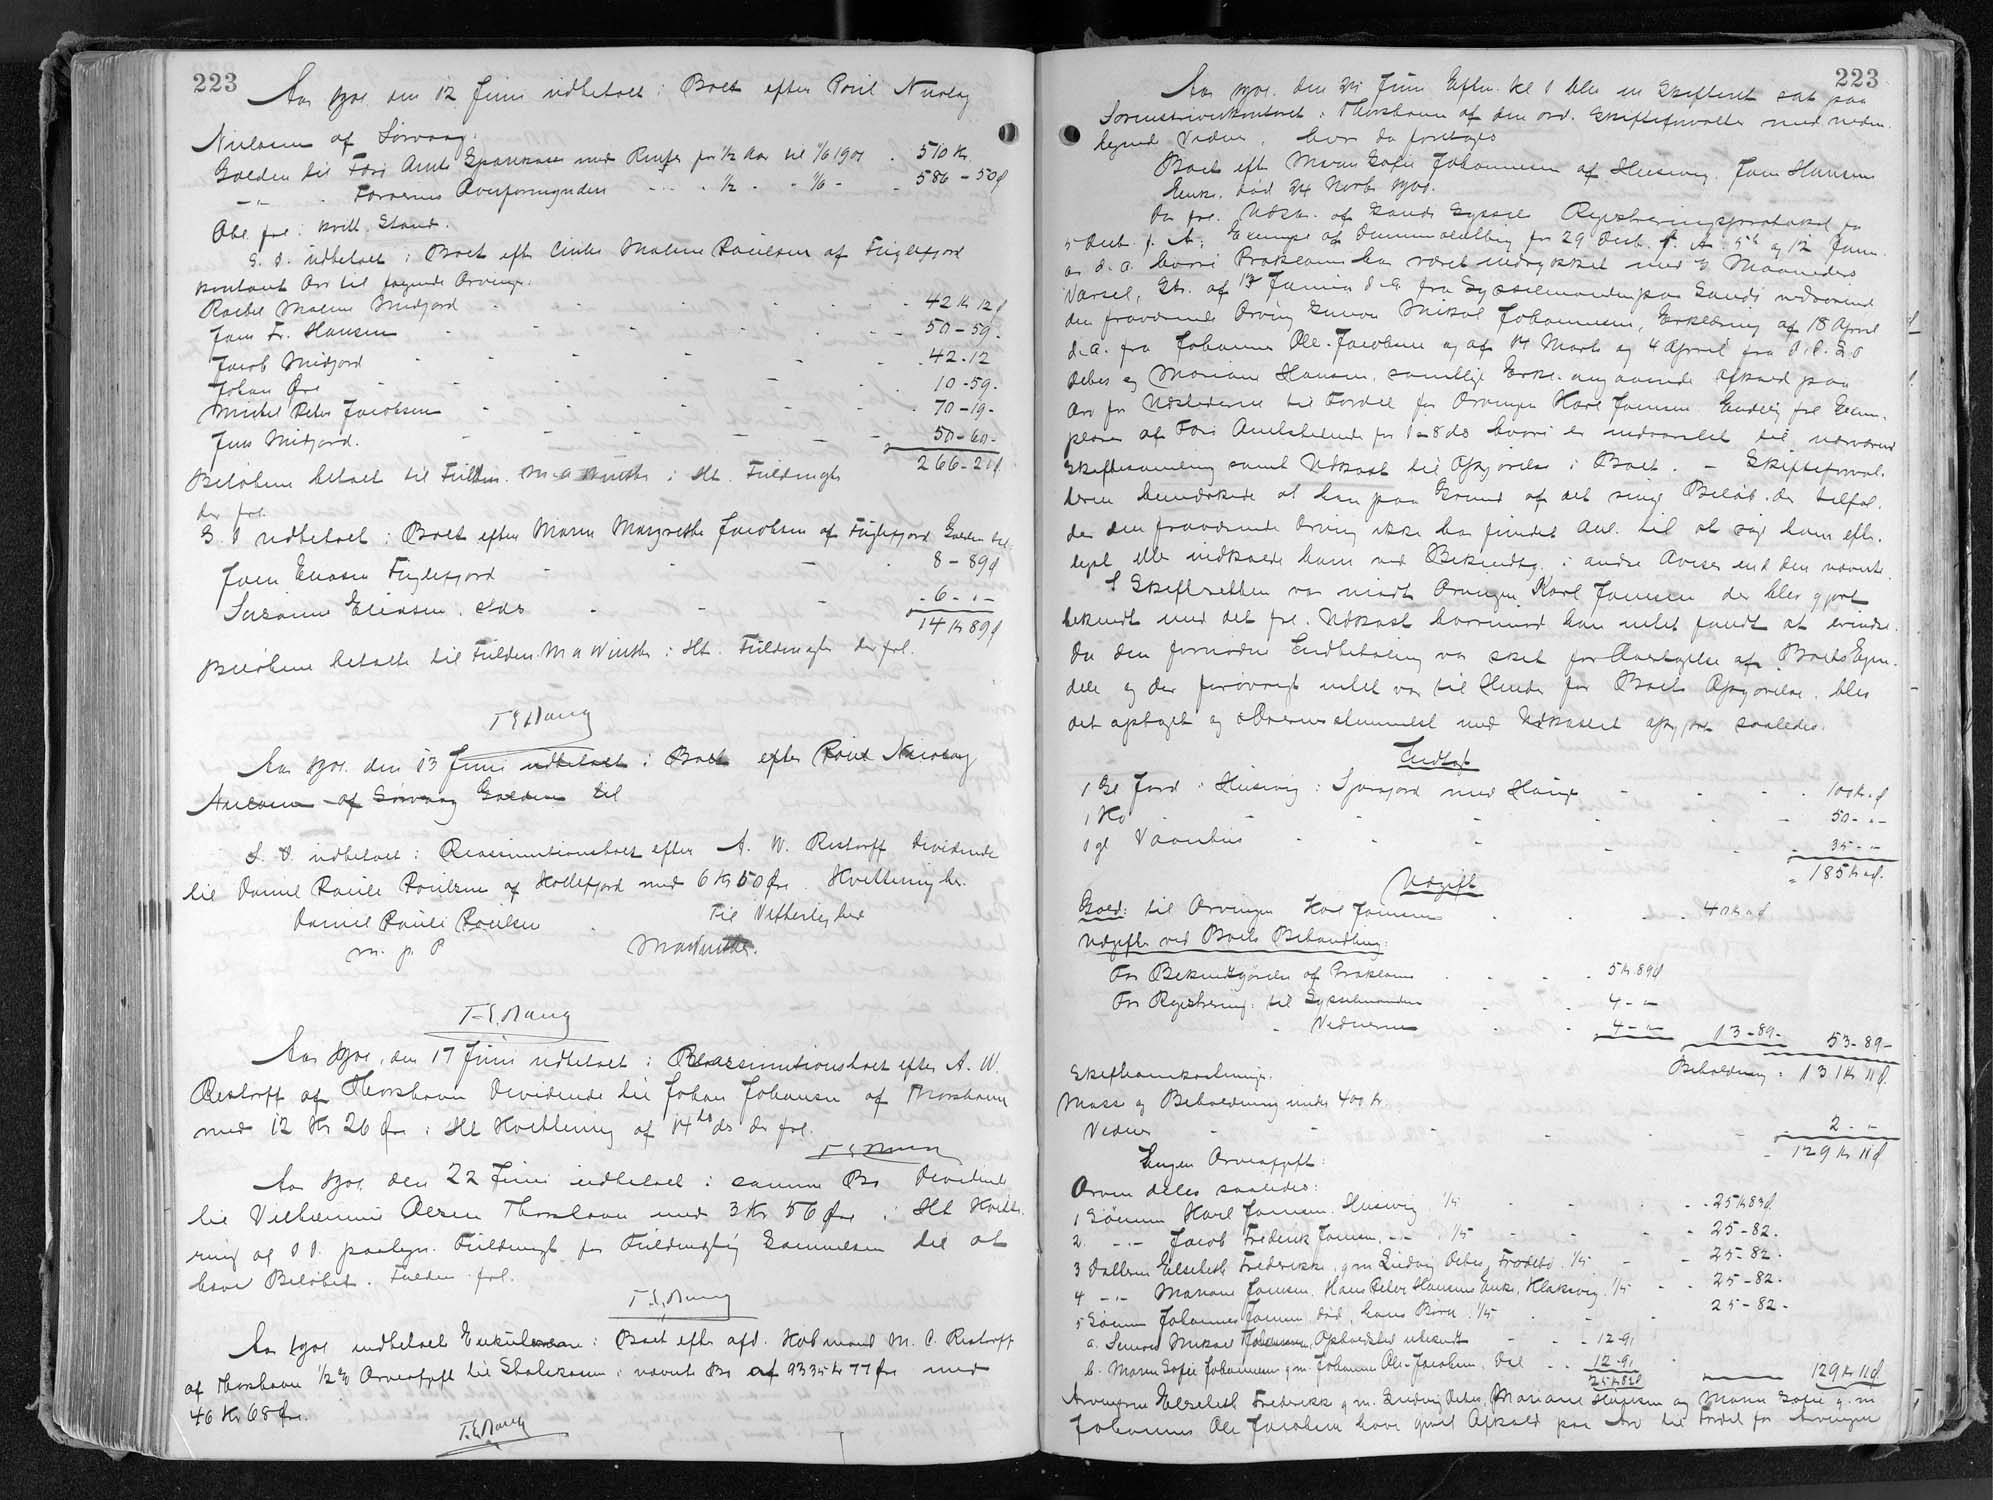 223
Aar 1901 den 12 Juni udbetalt i Boet efter Poul Nicolaj
Nielsen af Sörvaag.
Gælden til Færö Amts Sparekasse med Renter for ½ Aar til 1/6 1901 . 510 Kr.
-"- . Færöernes Overformynderi - - . ½ - . " 1/6 - . 586 - 50 Ø
Alt frl: kvitt. Stand.
S. D. udbetalt i Boet eft. Malene Poulsen af Fuglefjord
kontant Arv til følgende Arvinger.
Rachel Malene Midjord - - - - 42 Kr 12 Ø
Joen Fr. Hansen - - - - 50 - 59 -
Jacob Midjord - - - - 42 - 12
Johan Øre - - - - 10 - 59 -
Michel Peter Jacobsen - - - - 70 - 19 -
Jens Midjord. - - - - 50 - 60 -
266 - 21 Ø
Beløbene betalt til Fuldm. M A Winther i Hht. Fuldmagt
der frl.
S. D udbetalt i Boet efter Maren Margrethe Jacobsen af Fuglefjord Gælden til
Joen Eliasen Fuglefjord - - - 8 - 89 Ø
Susanne Eliasen sstds - - - 6 - " -
14 Kr 89 Ø
Beløbene betalte til Fuldm. M A Winther i Hht. Fuldmagt der frl.
T. E. Bang
Aar 1901 den 13 Juni udbetalt i Boet efter Poul Nicolaj
Nielsen af Sörvaag Gælden til
S. D. udbetalt i Reassumtionsboet efter A. W. Restorff Dividende
til Daniel Pauli Poulsen af Kollefjord med 6 Kr 50 Øre. Kvittering der.
Daniel Pauli Poulsen Til Vitterlighed
m. p. P MAWinther.
T. E. Bang
Aar 1901, den 17 Juni udbetalt i Reassumtionsboet efter A. W.
Restorff af Thorshavn Dividende til Johan Johansen af Thorshavn
med 12 Kr 26 Øre i Hht Kvittering af 14de ds der frl.
T. E. Bang
Aar 1901 den 22 Juni udbetalt i samme Bo Dividende
til Vilhelmine Olsen Thorshavn med 3 Kr 56 Øre i Hht Kvitte-
ring og D. D. paategn. Fuldmagt for Fuldmægtig Samuelsen til at
hæve Beløbet. Fuldm. frl.
T. E. Bang
Aar 1901 udbetalt i Boet efter afd. Købmand M. C. Restorff
af Thorshavn ½ % Arveafgift til Statskassen i nævnte Bo af 9335 Kr 77 Øre med
46 Kr 68 Øre.
T. E. Bang
223
Aar 1901. den 24 Juni Efterm. Kl 1 blev en Skifteret sat paa
Sorenskriverkontoret i Thorshavn af den ord. Skifteforvalter med neden-
tegned Vidner, hvor da foretoges
Boet eft. Maren Sofie Johannesen af Husevig, Joen Hansens
Enke, død 24 Novb. 1900.
Da frl. Udskr. af Sandø Syssels Registreringsprotokol fra
5 Decb. f. A; Exempl. af Dimmalætting for 29 Decb. f. A. 5te og 12 Janr.
d. A. hvori Proklama har været indrykket med 3 Maaneders
Varsel, Skr. af 17 Januar d. A. fra Sysselmanden paa Sandø vedrørende
den fraværende Arving Simon Mikal Johannesen, Erklæring af 18 April
d. A. fra Johannes Ole-Jacobsen og af 14 Marts og 4 April fra
Debes og Mariane Hansen, samtlige Erkl. angaaende Afkald paa
Arv for Udstederne til Fordel for Arvingen Karl Joensen. Endelig frl. Exem-
plarer af Færö Amtstidende for 1 - 8 ds hvori er indvarslet til nærværende
Skiftesamling samt Udkast til Opgjørelse i Boet. - Skifteforval-
teren bemærkede at han paa Grund af det ringe Beløb, der tilfal-
der den fraværende Arving ikke har fundet Anl. til at søge ham efter-
lyst eller indkalde ham ved Bekendtg. i andre Aviser end den nævnte.
I Skifteretten var mødt Arvingen Karl Joensen der blev gjort
bekendt med det frl. Udkast hvorimod han intet fandt at erindre.
Da den fornødne Indbetaling var sket for Overtagelse af Boets Ejen-
dele og der forøvrigt intet var til Hinder for Boets Opgjørelse, blev
det optaget og i Overensstemmelse med Udkastet opgjort saaledes.
Indtægt
1 Gl Jord i Husevig i Spovajord med Hauge - - - 100 Kr. " Ø
1 Ko - - - - 50 - " -
1 gl Vaanhus - - - - 35 - " -
185 Kr " Ø
Udgift
Gæld: til Arvingen Karl Joensen - - - 40 Kr " Ø
Udgifter ved Boets Behandling:
For Bekendtgørelse af Proklama - - - 5 Kr 89 Ø
For Registrering: til Sysselmanden - - 4 - " -
- Vidnerne - - 4 - " - 13 - 89 - 53 - 89 -
Beholdning = 131 Kr 11 Ø.
Skifteomkostninger.
Masse og Beholdning under 400 Kr.
Vidner - - - - 2 - " -
129 Kr 11 Ø
Ingen Arveafgift:
Arven deles saaledes:
1 Sønnen Karl Joensen. Husevig 1/5 - - - 25 Kr 83 Ø.
2 -"- Jacob Frederik Joensen, -"- 1/5 - - - 25 - 82 -
3 Datteren Elsebeth Frederikke, g. m. Ludvig Debes, Frodebø. 1/5 - - 25 - 82 -
4 -"- Mariane Joensen, Hans Peter Hansens Enke, Klaksvig. 1/5 - - 25 - 82 -
5 Sønnen Johannes Joensen død, hans Børn: 1/5 - - 25 - 82 -
a. Simon Mikael Johannesen, Opholdssted ubekendt - - 12 - 91
b. Maren Sofie Johannesen g. m. Johannes Ole-Jacobsen, Dal - - 12 - 91
25 Kr 82 Ø 129 Kr 11 Ø
Arvingerne Elsebeth Frederikke g. m. Ludvig Debes, Mariane Hansen og Maren Sofie g. m
Johannes Ole Jacobsen have givet Afkald paa Arv til Fordel for Arvingen